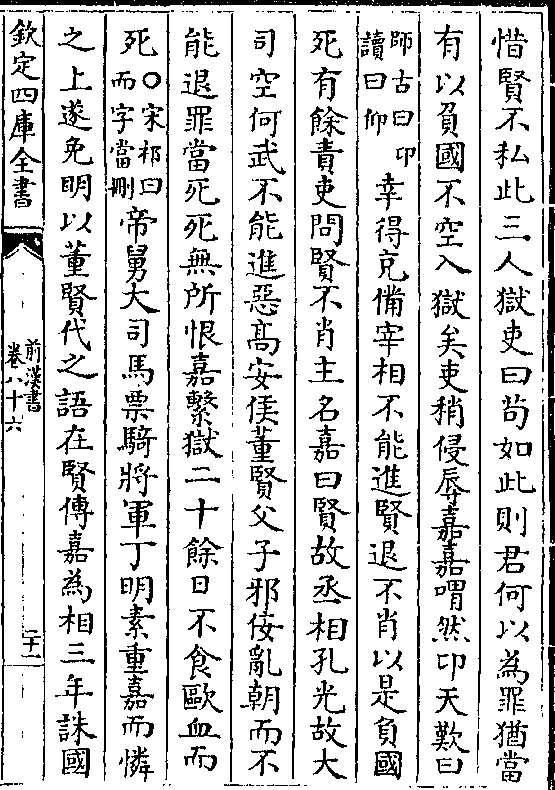 惜賢不私此三人獄吏曰茍如此則君何以為罪猶當
有以負國不空入獄矣吏稍侵辱嘉嘉喟然卬天歎曰
師古曰卬
讀曰仰
幸得充備宰相不能進賢退不肖以是負國
死有餘責吏問賢不肖主名嘉曰賢故丞相孔光故大
司空何武不能進惡髙安侯董賢父子邪佞亂朝而不
能退罪當死死無所恨嘉繫獄二十餘日不食歐血而
死
○宋祁曰
而字當刪
帝舅大司馬票騎將軍丁明素重嘉而憐
之上遂免明以董賢代之語在賢傳嘉為相三年誅國
欽定四庫全書
前漢書
卷八十六
二十一